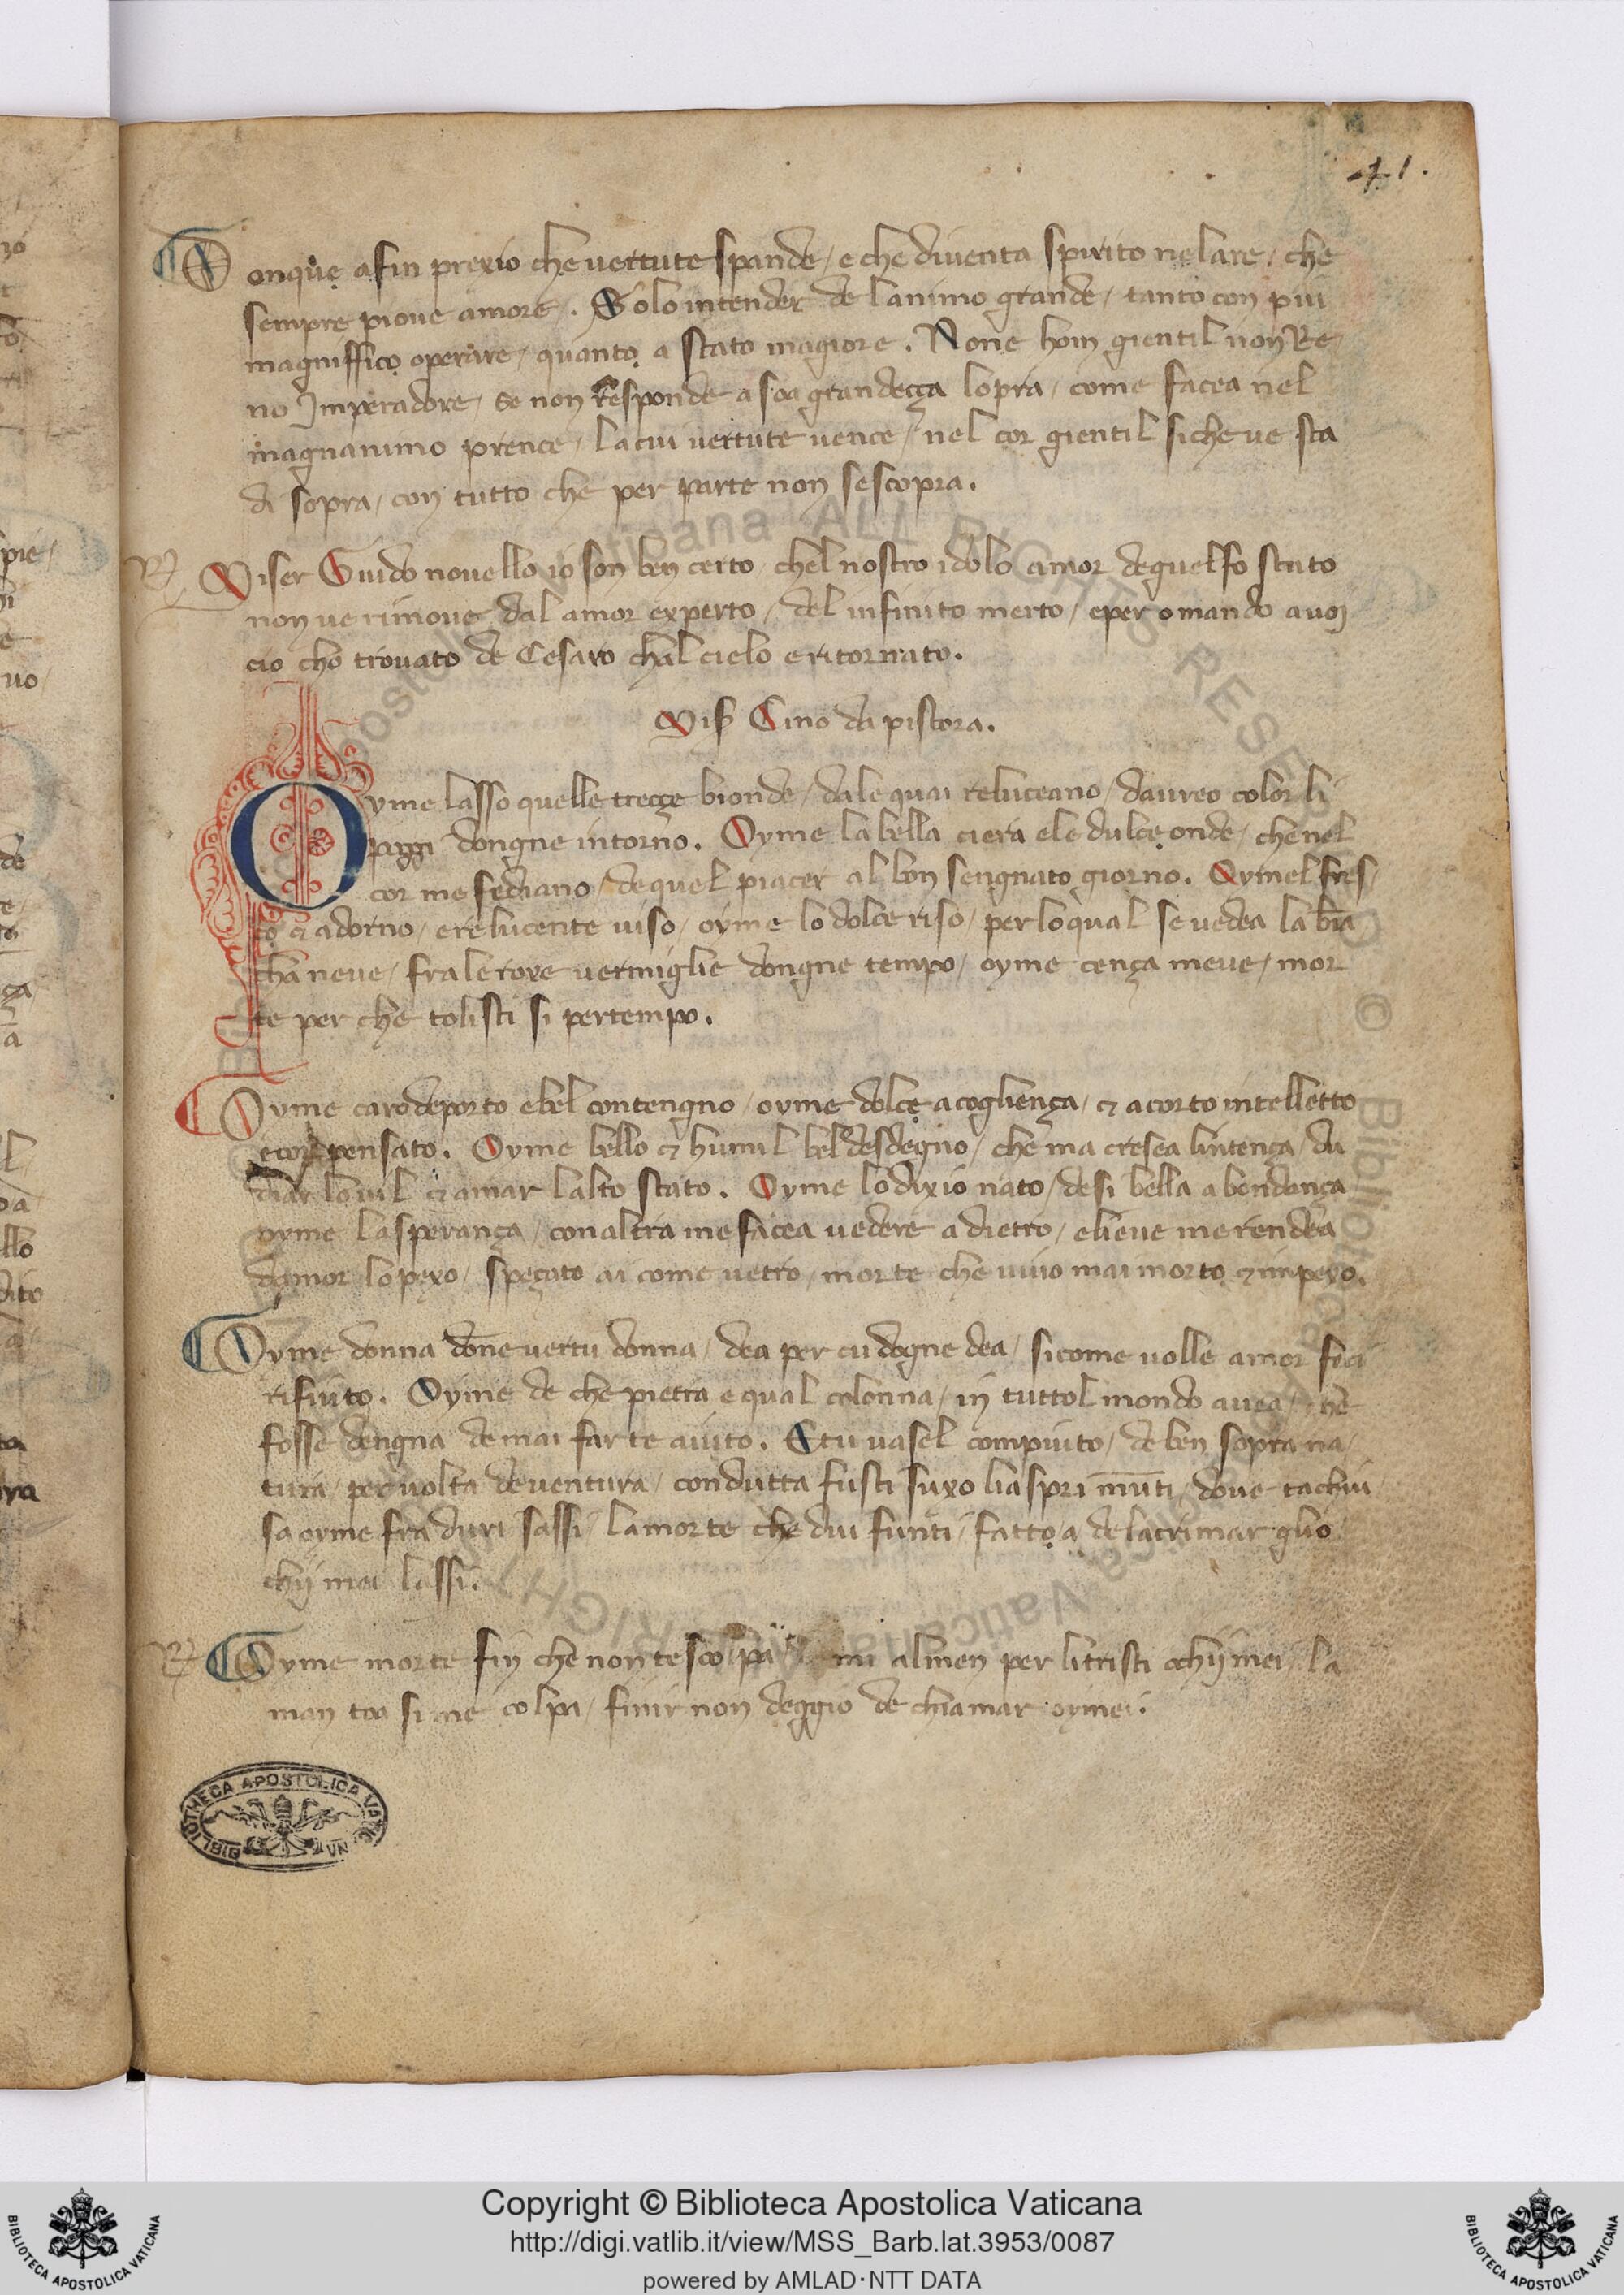 41.
Donque a fin prexio che vertute spande / e che diventa spirito nelare / che
sempre piove amore. Solo intender de lanimo grande / tanto con piu
magniffico operare / quanto a stato magiore. None hom gientil non Re
no Imperadore / se non Responde a soa grandeçça lopra / come facea nel
magnanimo prence / la cui vertute vence / nel cor gientil si che ve sta
di sopra / con tutto che per parte non se scopra.
Miser Guido novello io son ben certo / chel nostro idolo amor de guelfo stato
non ve rimove dal amor experto / del infinito merto / e pero mando a voi
cio cho trovato de Cesaro chal cielo e ritornato.
Mis Cino da pistora.
Oyme lasso quelle trecçe bionde / dale quai reluceano / daureo color li
poggi dongne intorno. Oyme la bella ciera e le dulce onde / che nel
cor me fediano / de quel piacer al bon sengnato giorno. Oymel fres
co et adorno / e relucente viso / oyme lo dolce riso / per lo qual se vedea la bia
cha neve / fra le roxe vermiglie dongne tempo / oyme cença meve / mor
te per che tolisti si per tempo.
Oyme caro deporto e bel contengno / oyme dolce acogliença / et acorto intelletto
e cor pensato. Oyme bello et humil bel desdegno / che ma cresea lintença / da
diar lo vil et amar lalto stato. Oyme lo dixio nato / de si bella abondança
oyme la sperança / con altra me facea vedere a dietro / e lieve me rendea
damor lo pexo / speçato ai come vetro / morte che vivo mai morto et inpexo.
Oyme donna done vertu donna / dea per cu dogne dea / si come volle amor feci
rifiuto. Oyme de che pietra e qual colonna / in tuttol mondo avea / che
fosse dengna de mai farte aiuto. E tu vasel compiuto / de ben sopra na
tura / per volta de ventura / condutta fusti suxo li aspri munti / dove tachiu
sa oyme fra duri sassi / la morte che dui funti / fatto a de lacrimar glio
chij mei lassi.
Oyme morte fin che non te scolpa mi almen per li tristi ochij mei / la
man toa si me colpi / finir non deggio de chiamar oymei.
BIBLIOTHECA APOSTOLICA VATICANA
Copyright © Biblioteca Apostolica Vaticana
http://digi.vatlib.it/view/MSS_Barb.lat.3953/0087
powered by AMLAD·NTT DATA
BIBLIOTECA APOSTOLICA VATICANA
BIBLIOTECA APOSTOLICA VATICANA